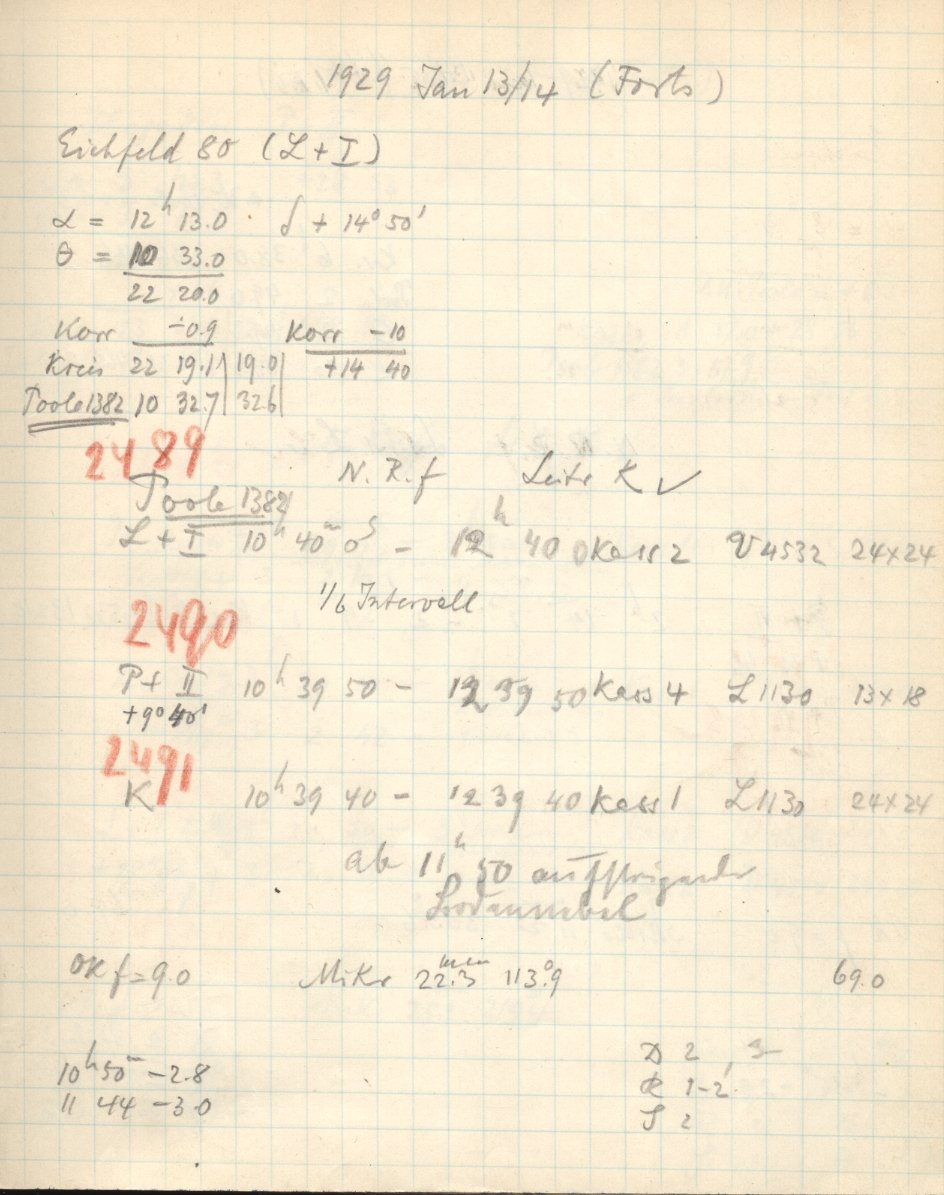 1929 Jan 13/14 (Forts)
Eichfeld 80 (L + I)
α = 12ʰ 13.0 δ + 14° 50'
θ = 10 33.0
22 20.0
Korr -0.9 Korr -10
Kreis 22 19.1 | 19.0 | +14 40
Poole 1382 10 32.7 | 32.6 |
2489
N. R. f Leitr K ✓
Poole 1382
L + I 10ʰ 40ᵐ 0ˢ - 12ʰ 40 0 Kass 2 V4532 24×24
1/6 Intervall
2490
P + II 10ʰ 39 50 - 12 39 50 Kass 4 L 1130 13×18
+9° 40'
2491
K 10ʰ 39 40 - 12 39 40 Kass 1 L 1130 24×24
ab 11ʰ 50 aufsteigender
Bodennebel
OK f = 9.0 Mikr 22.3ᵐᵐ 113.°9 69.0
10ʰ 50ᵐ -2.8 D 2
11 44 -3.0 R 1-2
S 2